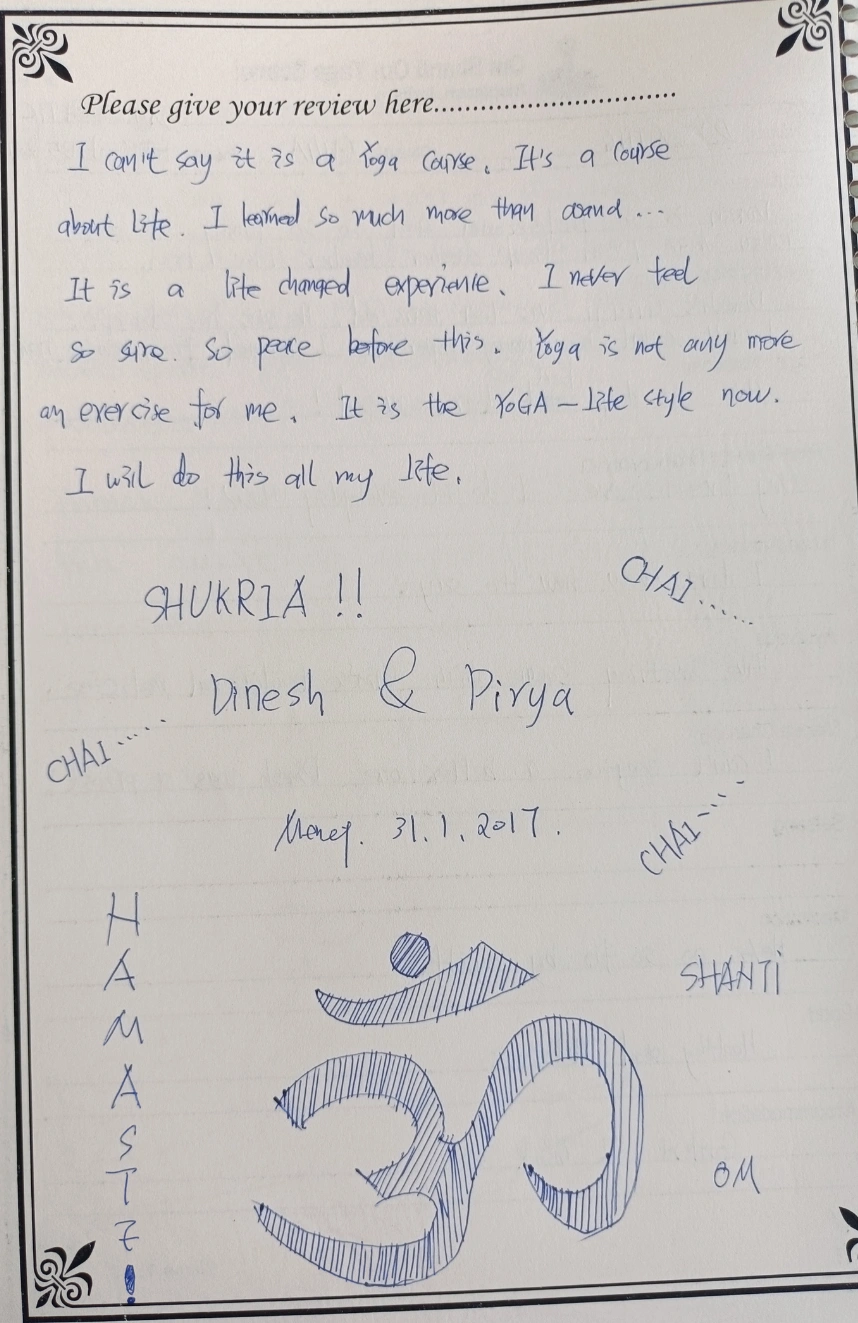 Please give your review here..............................
I can't say it is a Yoga Course. It's a Course
about Life. I learned so much more than asand ...
It is a life changed experience. I never feel
so sure. So peace before this. Yoga is not any more
an exercise for me. It is the YOGA – life style now.
I will do this all my life.
SHUKRIA !!
CHAI ......
Dinesh & Pirya
CHAI .....
31.1.2017.
CHAI ....
NAMASTE!
SHANTi
OM
ॐ